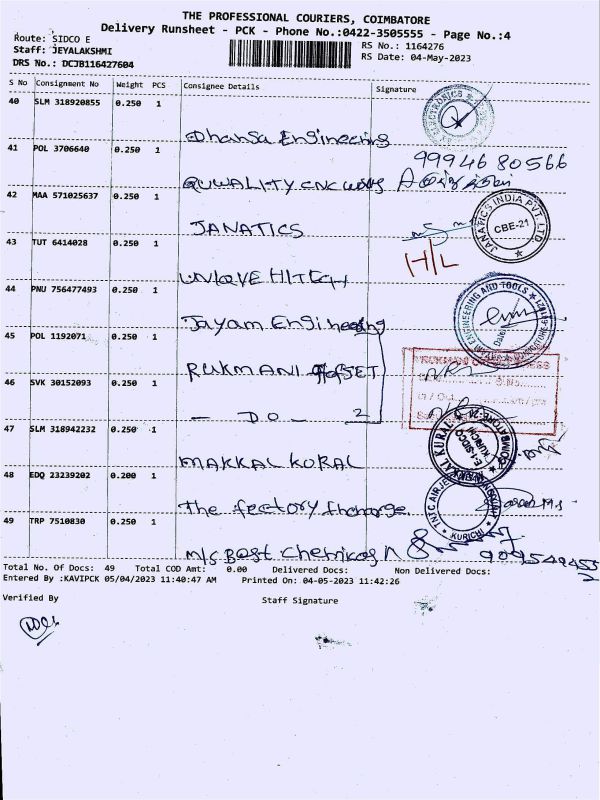 THE PROFESSIONAL COURIERS, COIMBATORE
Delivery Runsheet - PCK - Phone No.:0422-3505555 - Page No.:4
Route: SIDCO E
Staff: JEYALAKSHMI
DRS No.: DCJB116427604
RS No.: 1164276
RS Date: 04-May-2023
S No Consignment No Weight PCS Consignee Details Signature
40 SLM 318920855 0.250 1
Dhansa Engineering
41 POL 3706640 0.250 1
99946 80566
QUWALITY CNC works
42 MAA 571025637 0.250 1
JANATICS
JANATICS INDIA PVT. LTD
CBE-21
43 TUT 6414028 0.250 1
H/L
UNIQVE HITECH
44 PNU 756477493 0.250 1
Jayam Engineering
ENGINEERING AND TOOLS
Date
45 POL 1192071 0.250 1
RUKMANI offSET
RUKMANI
46 SVK 30152093 0.250 1
- DO - 2
47 SLM 318942232 0.250 1
MAKKAL KURAL
MAKKAL KURAL
E1-SIDCO
KURICHI
COIMBATORE-21
48 EDQ 23239202 0.200 1
The fectory Incharge
KURICHI
49 TRP 7510830 0.250 1
M/s Best Chemicals
Total No. Of Docs: 49 Total COD Amt: 0.00 Delivered Docs: Non Delivered Docs:
Entered By :KAVIPCK 05/04/2023 11:40:47 AM Printed On: 04-05-2023 11:42:26
Verified By Staff Signature